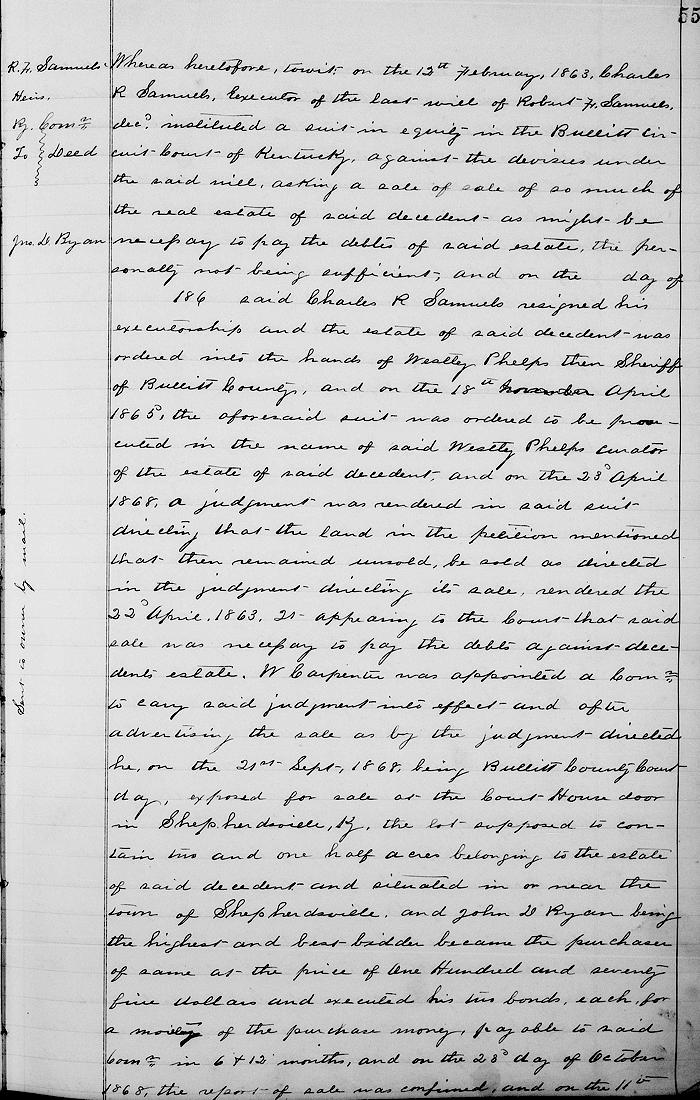 55
R. F. Samuels
Heirs.
By. Comr.
To } Deed
Jno. D Ryan
Sent to owner by mail.
Whereas heretofore, towit, on the 12th February, 1863, Charles
R Samuels, Executor of the last will of Robert F. Samuels,
decd. instituted a suit in equity in the Bullitt cir-
cuit Court of Kentucky, against the devisees under
the said will, asking a sale of sale of so much of
the real estate of said decedent as might be
necessary to pay the debts of said estate, the per-
sonalty not being sufficient, and on the day of
186 said Charles R Samuels resigned his
executorship and the estate of said decedent was
ordered into the hands of Westley Phelps then Sheriff
of Bullitt County, and on the 18th November April
1865, the aforesaid suit was ordered to be prose-
cuted in the name of said Westly Phelps curator
of the estate of said decedent, and on the 23d April
1868, a judgment was rendered in said suit
directing that the land in the petition mentioned
that then remained unsold, be sold as directed
in the judgment directing its sale, rendered the
22d April, 1863. It appearing to the Court that said
sale was necessary to pay the debts against dece-
dents estate. W Carpenter was appointed a Comr.
to cary said judgment into effect and after
advertising the sale as by the judgment directed
he, on the 21st Sept, 1868, being Bullitt County Court
day, exposed for sale at the Court House door
in Shepherdsville, Ky, the lot supposed to con-
tain two and one half acres belonging to the estate
of said decedent and situated in or near the
town of Shepherdsville, and John D Ryan being
the highest and best bidder became the purchaser
of same at the price of One Hundred and seventy
five dollars and executed his two bonds, each, for
a moiety of the purchase money, payable to said
Comr. in 6 & 12 months, and on the 23d day of October
1868, the report of sale was confirmed, and on the 11th